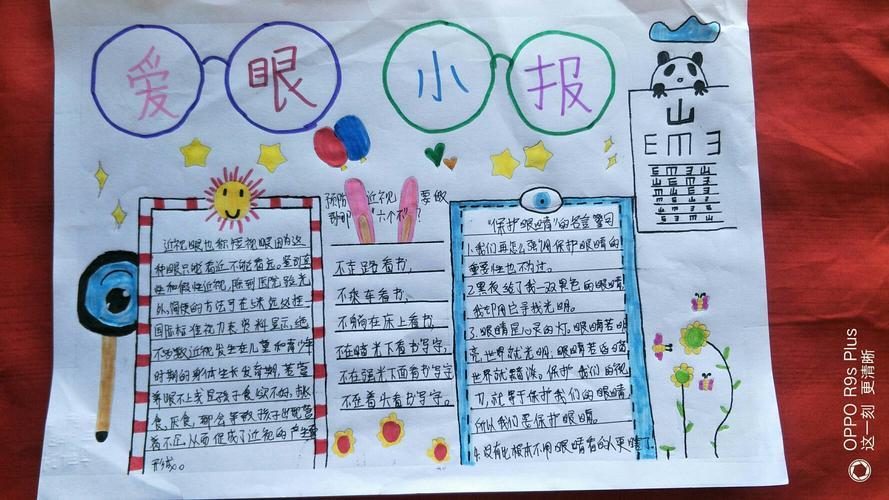 爱眼小报
近视眼也称短视眼因为这
种眼只能看近不能看远。鉴别真
性和假性近视,除到医院散光
外,简便的方法可在
国际标准视力表
资料显示,绝
大多数近视发生在儿童和青少年
时期的身体生长发育期,若营
养跟不上或是孩子食欲不好,挑
食、厌食,那么导致孩子出现营
养不足,从而促成了近视的产生和
形成。
预防近视 要做
到哪“六个不”?
不走路看书、
不乘车看书、
不躺在床上看书、
不在暗光下看书写字、
不在强光下面看书写字
不歪着头看书写字。
“保护眼睛”的名言警句
1.我们再怎么强调保护眼睛的
重要性也不为过。
2.黑夜给了我一双黑色的眼睛
我却用它寻找光明。
3.眼睛是心灵的灯。眼睛若明
亮,世界就光明,眼睛若昏暗,
世界就黯淡。保护我们的视
力,就等于保护我们的眼睛,
所以我们要保护眼睛。
4.没有比根本不用眼睛看的人更瞎了
山
E M E 3
OPPO R9s Plus
这一刻 更清晰